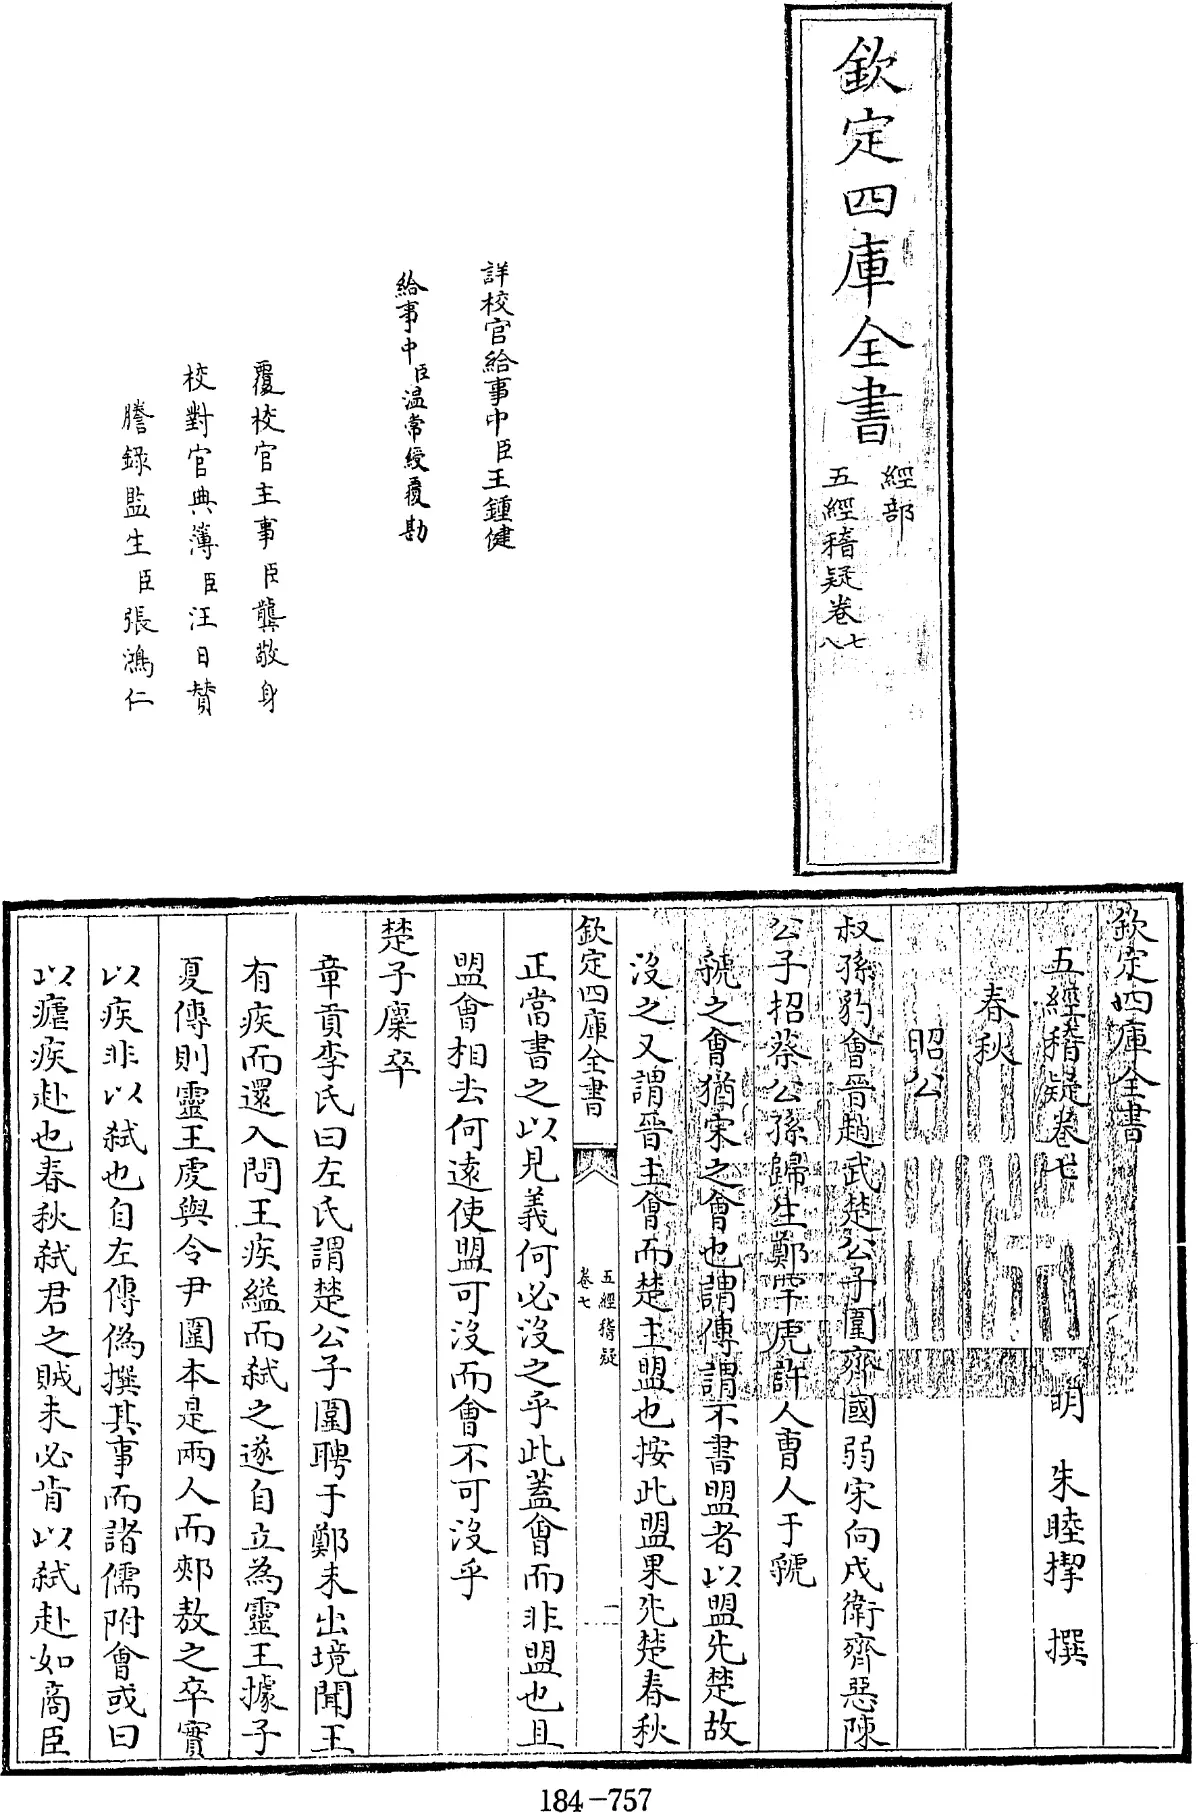 欽定四庫全書
經部
五經稽疑卷七八
詳校官給事中臣王鍾健
給事中臣温常綬覆勘
覆校官主事臣龔敬身
校對官典簿臣汪日贊
謄錄監生臣張鴻仁
欽定四庫全書
五經稽疑卷七 明 朱睦㮮 撰
春秋
昭公
叔孫豹會晉趙武楚公子圍齊國弱宋向戌衛齊惡陳
公子招蔡公孫歸生鄭罕虎許人曹人于虢
虢之會猶宋之會也謂傳謂不書盟者以盟先楚故
没之又謂晉主會而楚主盟也按此盟果先楚春秋
欽定四庫全書
五經稽疑
卷七
一
正當書之以見義何必没之乎此蓋會而非盟也且
盟會相去何遠使盟可没而會不可没乎
楚子麇卒
章貢李氏曰左氏謂楚公子圍聘于鄭未出境聞王
有疾而還入問王疾縊而弑之遂自立為靈王據子
夏傳則靈王虔與令尹圍本是兩人而郟敖之卒實
以疾非以弑也自左傳偽撰其事而諸儒附會或曰
以瘧疾赴也春秋弑君之賊未必肯以弑赴如商臣
184-757